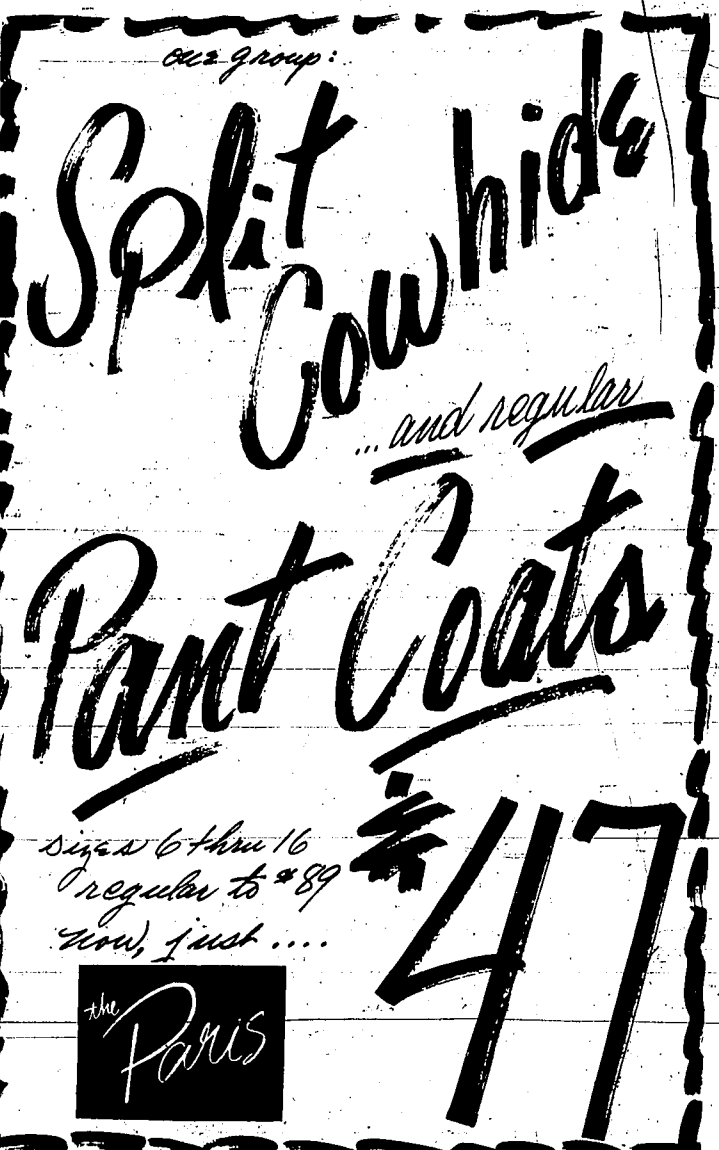 one group:
Split
Cowhide
...and regular
Pant Coats
sizes 6 thru 16
regular to $89
now, just....
$47
the
Paris